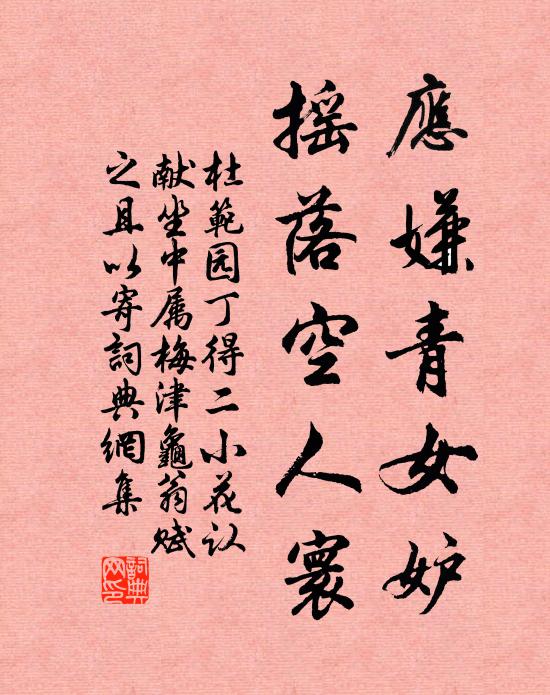 應嫌青女妒
摇落空人寰
杜範园丁得二小花以
献坐中属梅津龜翁赋
之且以寄詞典網集
詞典
网印